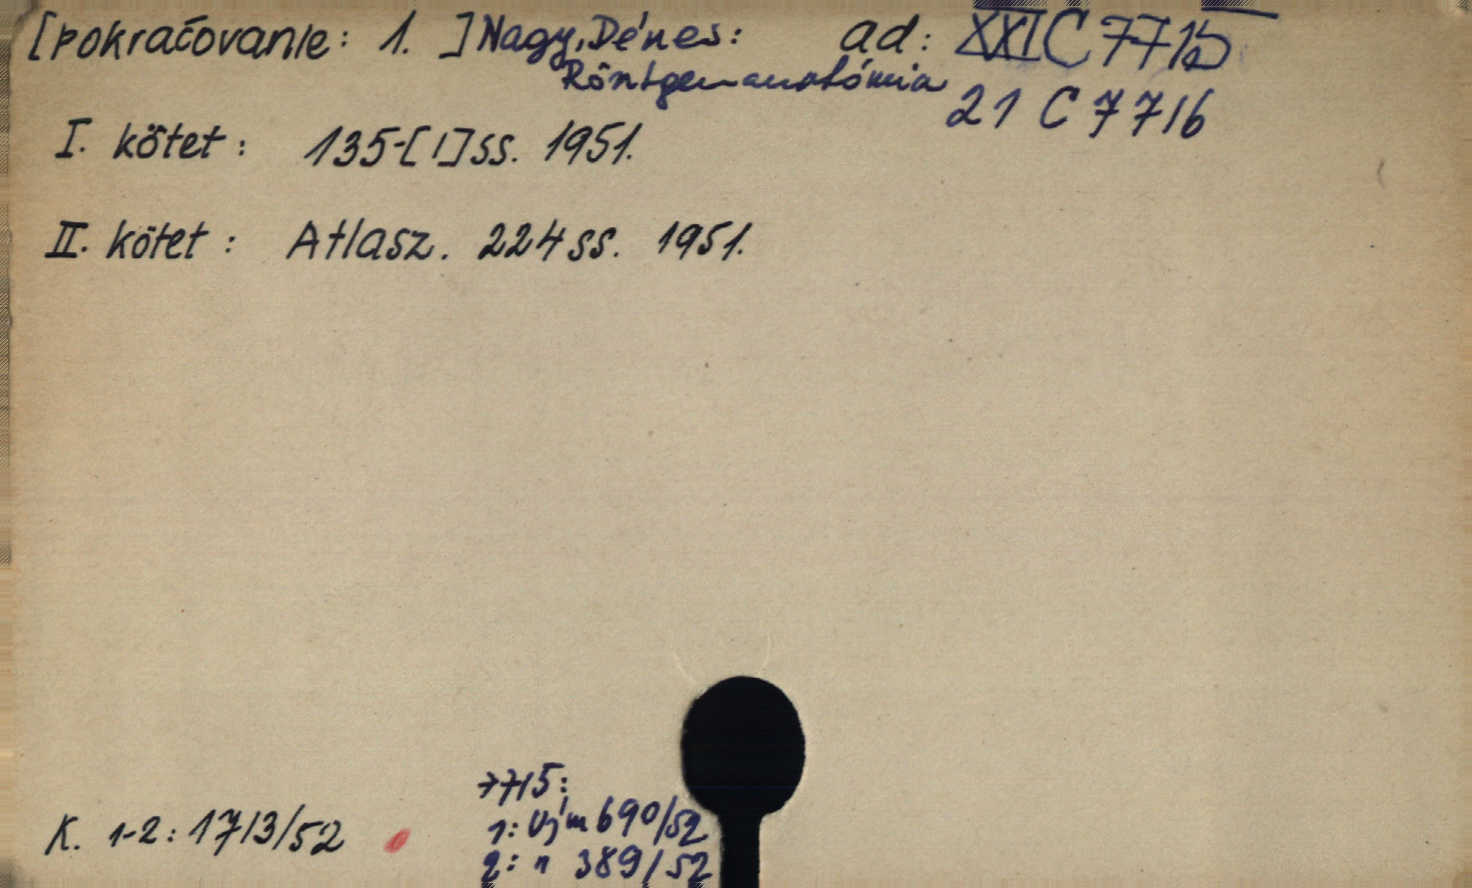 [pokračovanie: 1. ] Nagy, Dénes: ad: XXI C 7715
Röntgenanatómia 21 C 7716
I. kötet: 135-[1] ss. 1951.
II. kötet: Atlasz. 224 ss. 1951.
7715:
K. 1-2: 1713/52 1: Új m 690/52
2: " 389/52